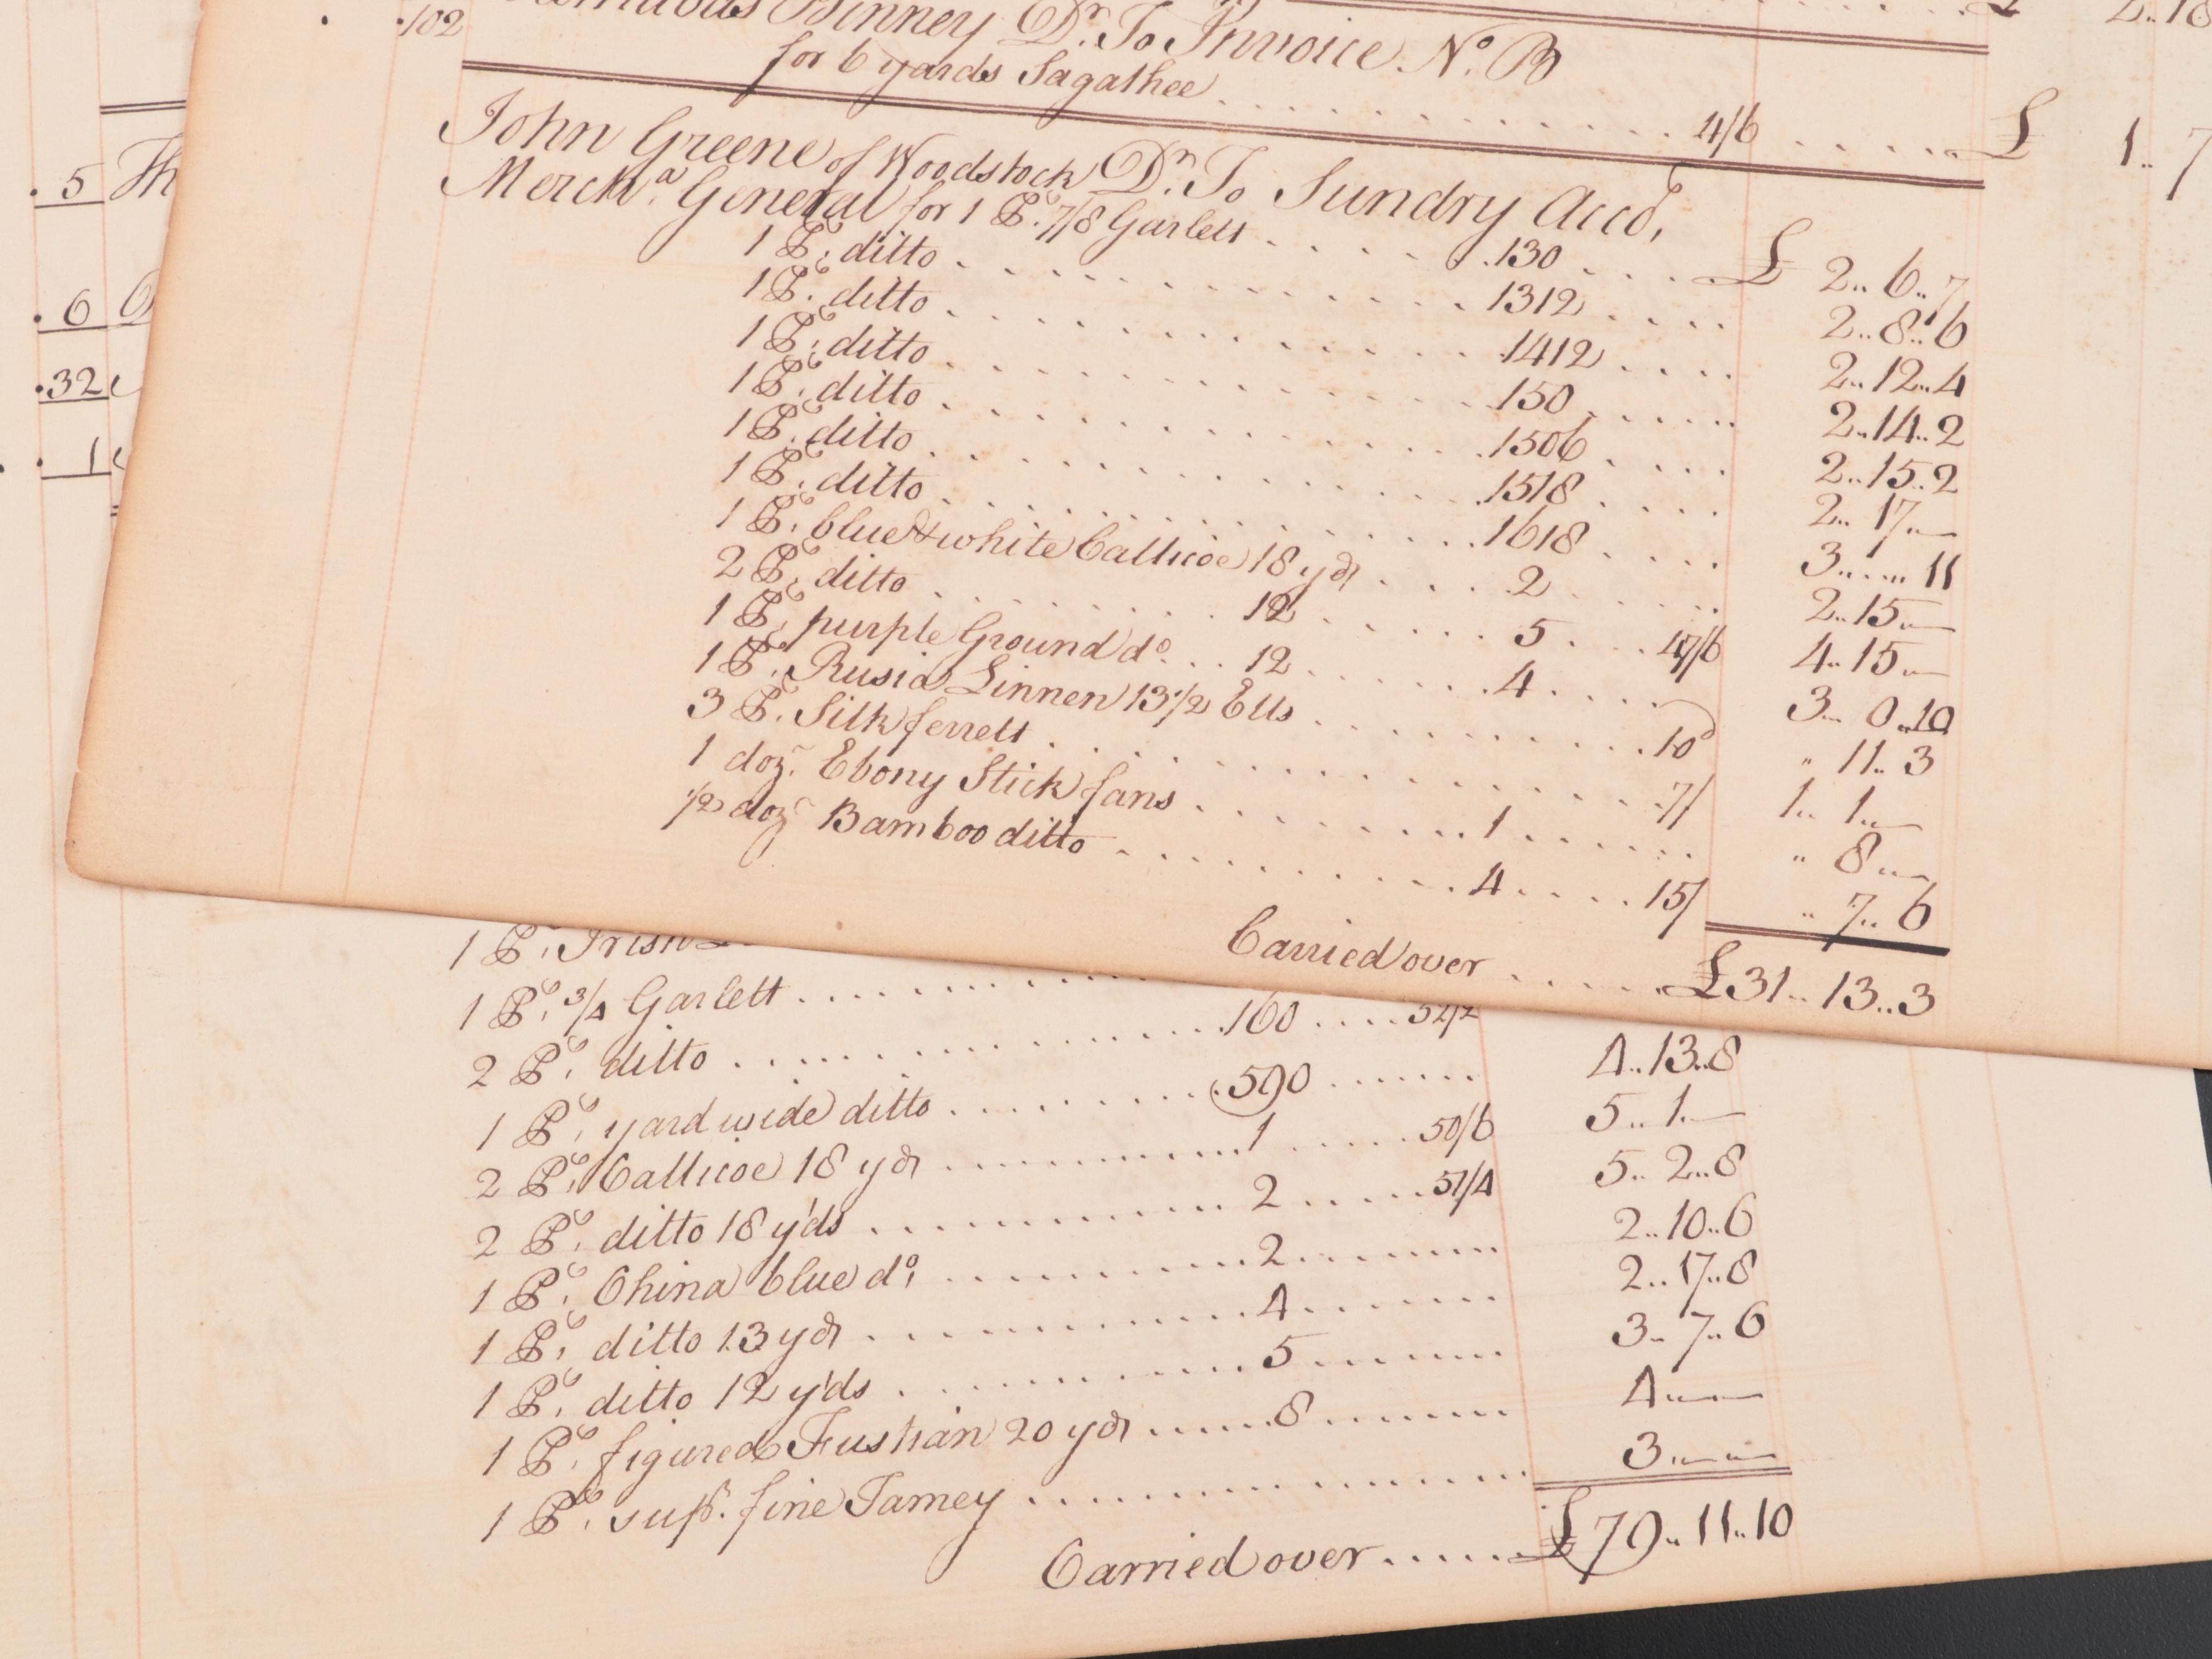 .102 Binney Dr. To Invoice No. B £ 2..18
for 6 yards Sagathee 4/6 £ 1.. 7
John Greene of Woodstock Dr. To Sundry Accos,
Merchа. General for 1 Pe. 7/8 Garlett .130 £ 2..6..7
1 Pe. ditto 1312 2..8..6
1 Pe. ditto 1412 2..12..4
1 Pe. ditto .150 2..14..2
1 Pe. ditto .1506 2..15..2
1 Pe. ditto .1518 2..17..—
1 Pe. ditto .1618 3.......11
1 Pe. blue & white Callicoe 18 yds 2 2..15..—
2 Pe. ditto 12 5 47/6 4..15..—
1 Pe. purple Ground do. 12 .4 3..0..10
1 Pe. Rusia Linnen 13 1/2 Ells .10d " 11..3
3 Pe. Silk ferrett 7/ 1..1..—
1 doz. Ebony Stick fans 1 " 8..—
1/2 doz. Bamboo ditto 4 15/ " 7..6
Carried over £31..13..3
.5
.6
.32
.1
1 Pe. Irish
1 Pe. 3/4 Garlett
2 Pe. ditto .160 4..13..8
1 Pe. yard wide ditto .590 5..1.—
2 Pe. Callicoe 18 yds 1 50/6 5..2..8
2 Pe. ditto 18 y'ds 2 51/4 2..10..6
1 Pe. China blue do. 2 2..17..8
1 Pe. ditto 13 yds 4 3..7..6
1 Pe. ditto 12 y'ds 5 4..—..—
1 Pe. figured Fustian 20 yds 8 3..—..—
1 Pe. supr. fine Tamey
Carried over £79..11..10